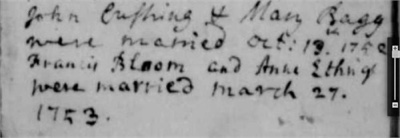 John Cushing & Mary Bagg
were married Oct: 13.th 1752
Francis Bloom and Anne Ething
were married march 27.
1753.